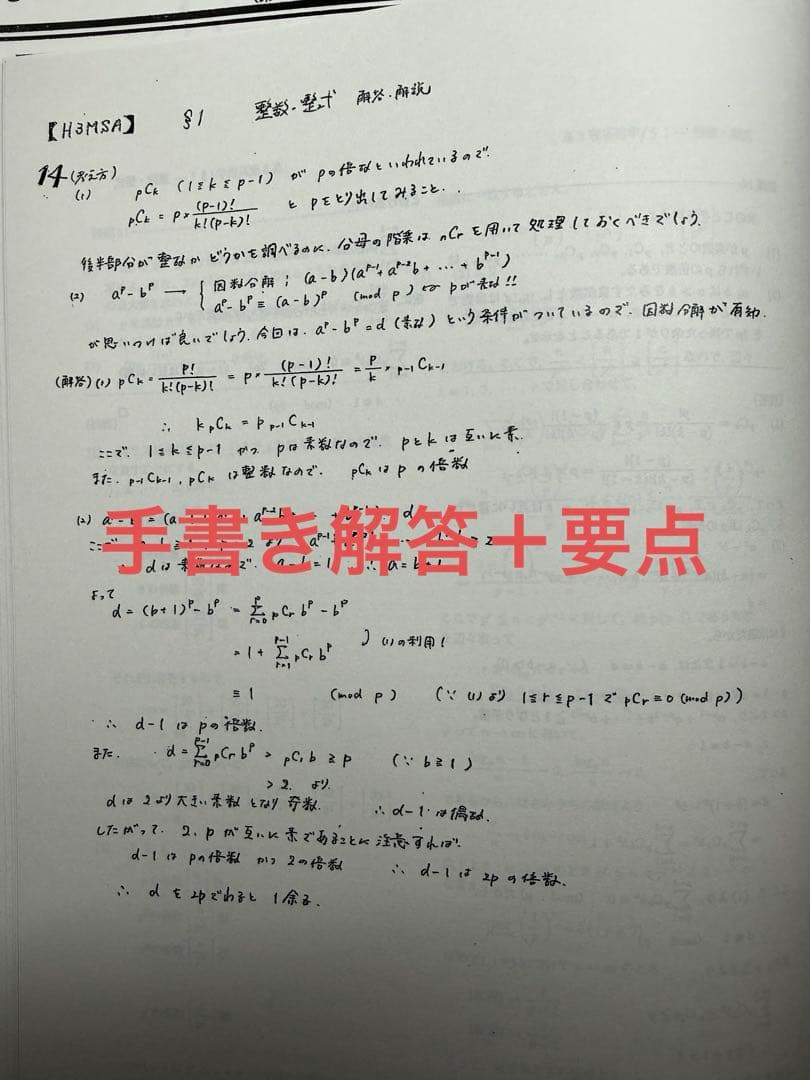 【H3MSA】 §1 整数・整式 解答・解説
14 (考え方)
(1) pCk (1≦k≦p-1) が pの倍数といわれているので、
pCk = p × (p-1)! / k!(p-k)! と pをとり出してみること、
後半部分が整数かどうかを調べるのに、分母の階乗は nCr を用いて処理しておくべきでしょう。
(2) a^p - b^p → { 因数分解; (a-b)(a^{p-1} + a^{p-2}b + … + b^{p-1})
a^p - b^p ≡ (a-b)^p (mod p) ← pが素数!!
が思いつけば良いでしょう。今回は、a^p - b^p = d (素数) という条件がついているので、因数分解が有効.
(解答) (1) pCk = p! / k!(p-k)! = p × (p-1)! / k!(p-k)! = p/k × p-1Ck-1
∴ k pCk = p p-1Ck-1
ここで、1≦k≦p-1 かつ pは素数なので、pとkは互いに素.
また、p-1Ck-1, pCk は整数なので、pCk は p の倍数
手書き解答+要点
よって
d = (b+1)^p - b^p = Σ_{r=0}^{p} pCr b^p - b^p
= 1 + Σ_{r=1}^{p-1} pCr b^p ) (1)の利用!
≡ 1 (mod p) (∵ (1)より 1≦r≦p-1 で pCr ≡ 0 (mod p))
∴ d-1 は pの倍数.
また、 d = Σ_{r=0}^{p-1} pCr b^p > pC1 b ≧ p (∵ b≧1)
> 2. より.
d は 2より大きい素数となり奇数. ∴ d-1 は偶数.
したがって、2, p が互いに素であることに注意すれば、
d-1 は pの倍数 かつ 2の倍数 ∴ d-1 は 2p の倍数.
∴ d を 2p でわると 1余る.